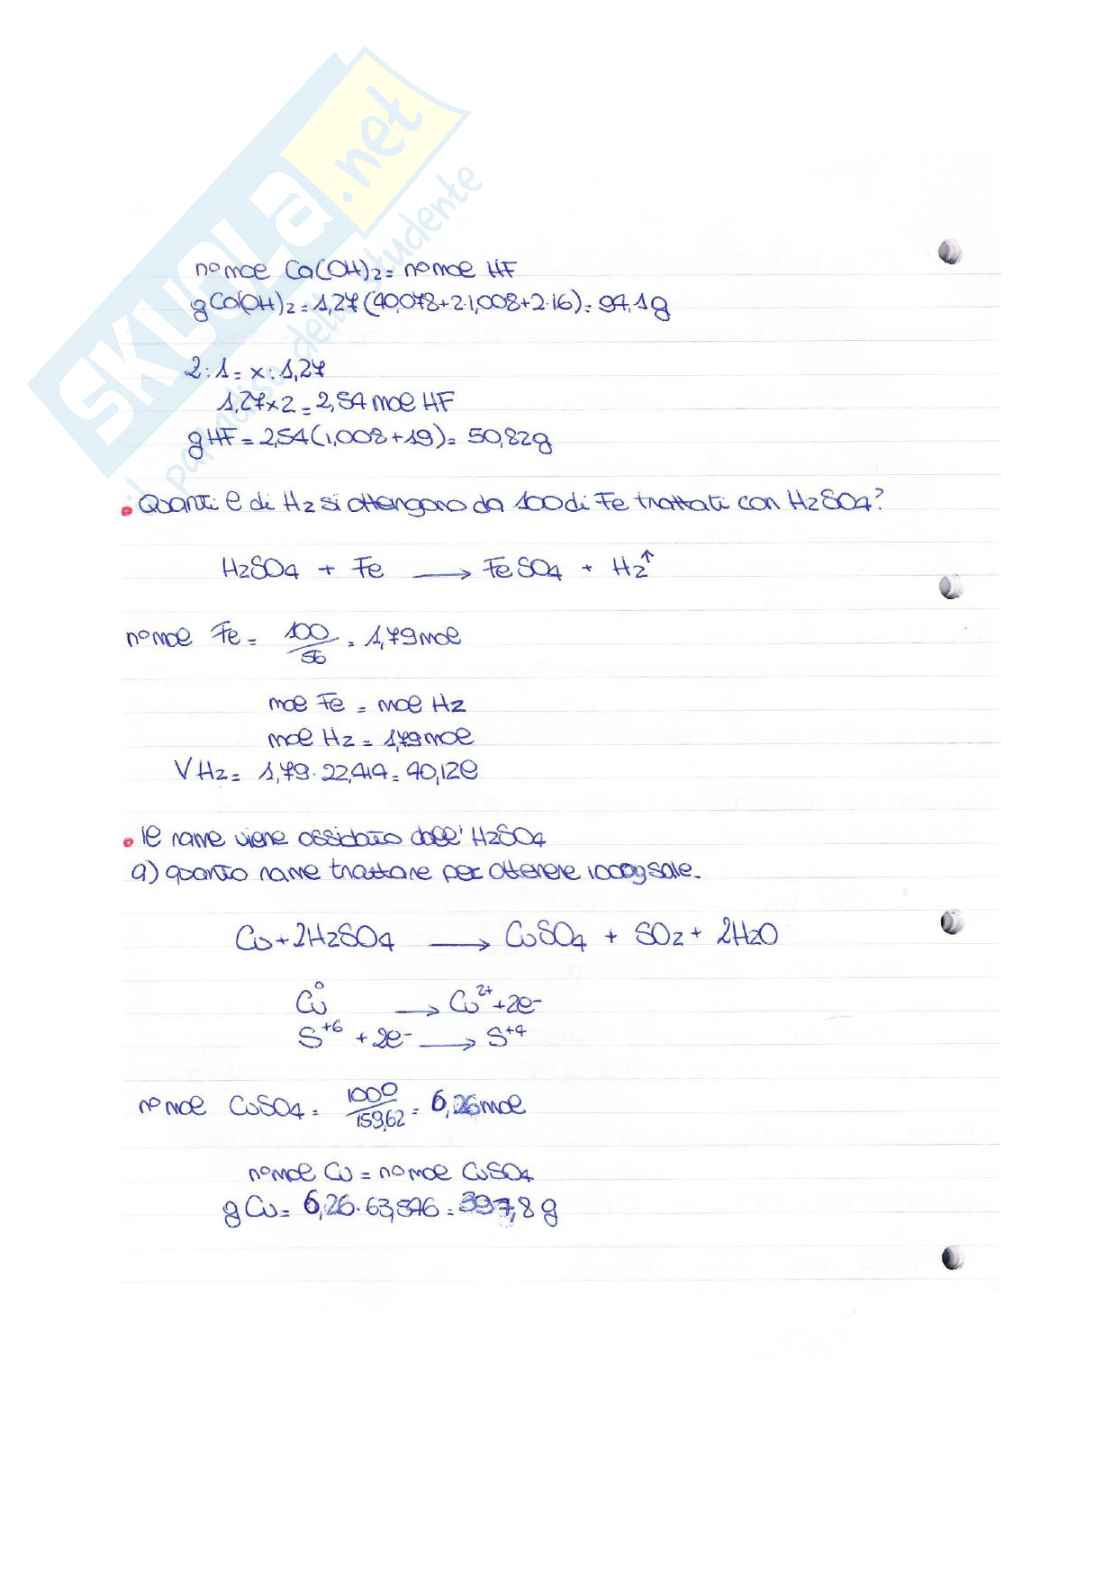 SKUOLA.net
il paradiso dello studente
n° mol Ca(OH)2 = n° mol HF
gCa(OH)2 = 1,27(40,078+2·1,008+2·16) = 94,1g
2:1 = x:1,27
1,27x2 = 2,54 mol HF
gHF = 2,54(1,008+19) = 50,82g
• Quanti l di H2 si ottengono da 100 di Fe trattati con H2SO4?
H2SO4 + Fe → FeSO4 + H2↑
n° mol Fe = 100/56 = 1,79 mol
mol Fe = mol H2
mol H2 = 1,79 mol
V H2 = 1,79·22,414 = 40,12l
• Il rame viene ossidato dall'H2SO4
a) quanto rame trattare per ottenere 1000g sale.
Cu + 2H2SO4 → CuSO4 + SO2 + 2H2O
Cu⁰ → Cu²⁺ + 2e⁻
S⁺⁶ + 2e⁻ → S⁺⁴
n° mol CuSO4 = 1000/159,62 = 6,26 mol
n° mol Cu = n° mol CuSO4
gCu = 6,26·63,546 = 397,8 g